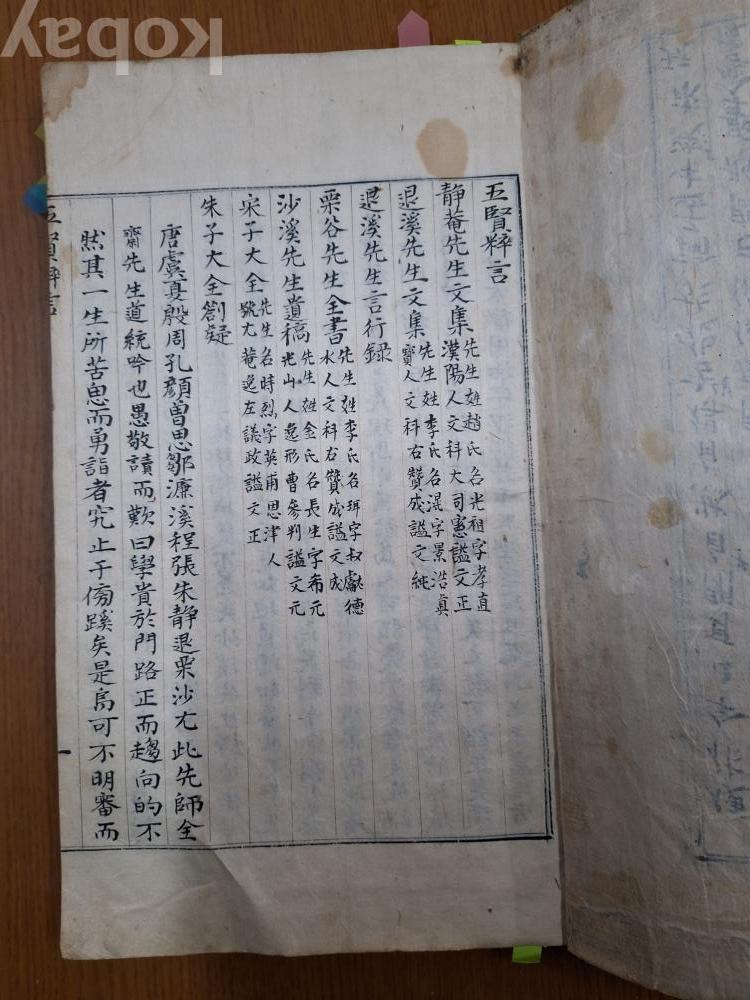 五賢粹言
靜菴先生文集 先生姓趙氏名光祖字孝直
漢陽人文科大司憲謚文正
退溪先生文集 先生姓李氏名滉字景浩眞
寶人文科右贊成謚文純
退溪先生言行錄
栗谷先生全書 先生姓李氏名珥字叔獻德
水人文科右贊成謚文成
沙溪先生遺稿 先生姓金氏名長生字希元
光山人逸形曹參判謚文元
宋子大全 先生名時烈字英甫恩津人
號尤菴逸左議政謚文正
朱子大全箚疑
唐虞夏殷周孔顏曾思鄒濂溪程張朱靜退栗沙尤此先師全
齋先生道統吟也愚敬讀而歎曰學貴於門路正而趨向的不
然其一生所苦思而勇詣者究止于傍蹊矣是烏可不明審而
五賢粹言
一
kobay